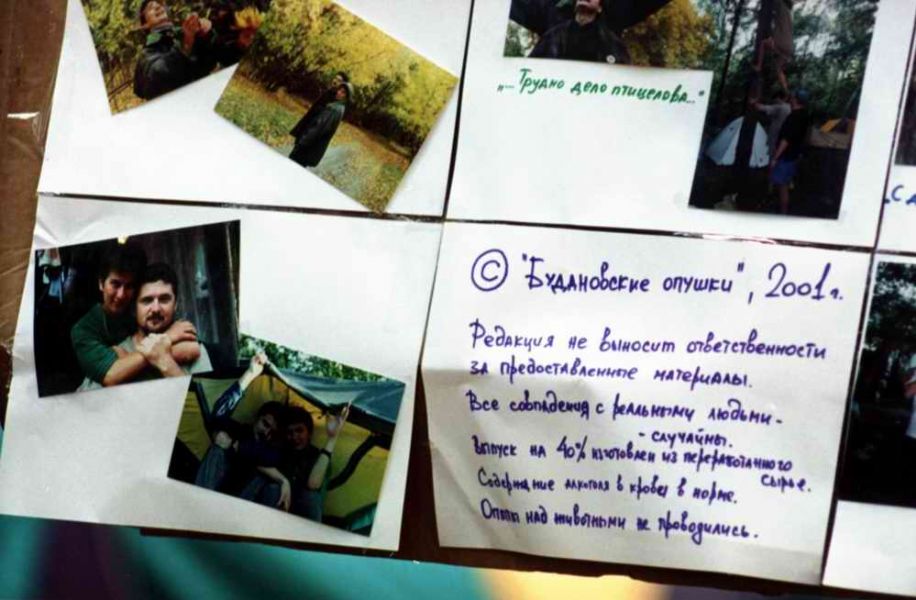 „...Трудно дело птицелова..."
© "Будановские опушки", 2001г.
Редакция не выносит ответственности
за предоставленные материалы.
Все совпадения с реальными людьми -
- случайны.
Выпуск на 40% изготовлен из переработанного
сырье.
Содержание алкоголя в крове в норме.
Опыты над животными не проводились.